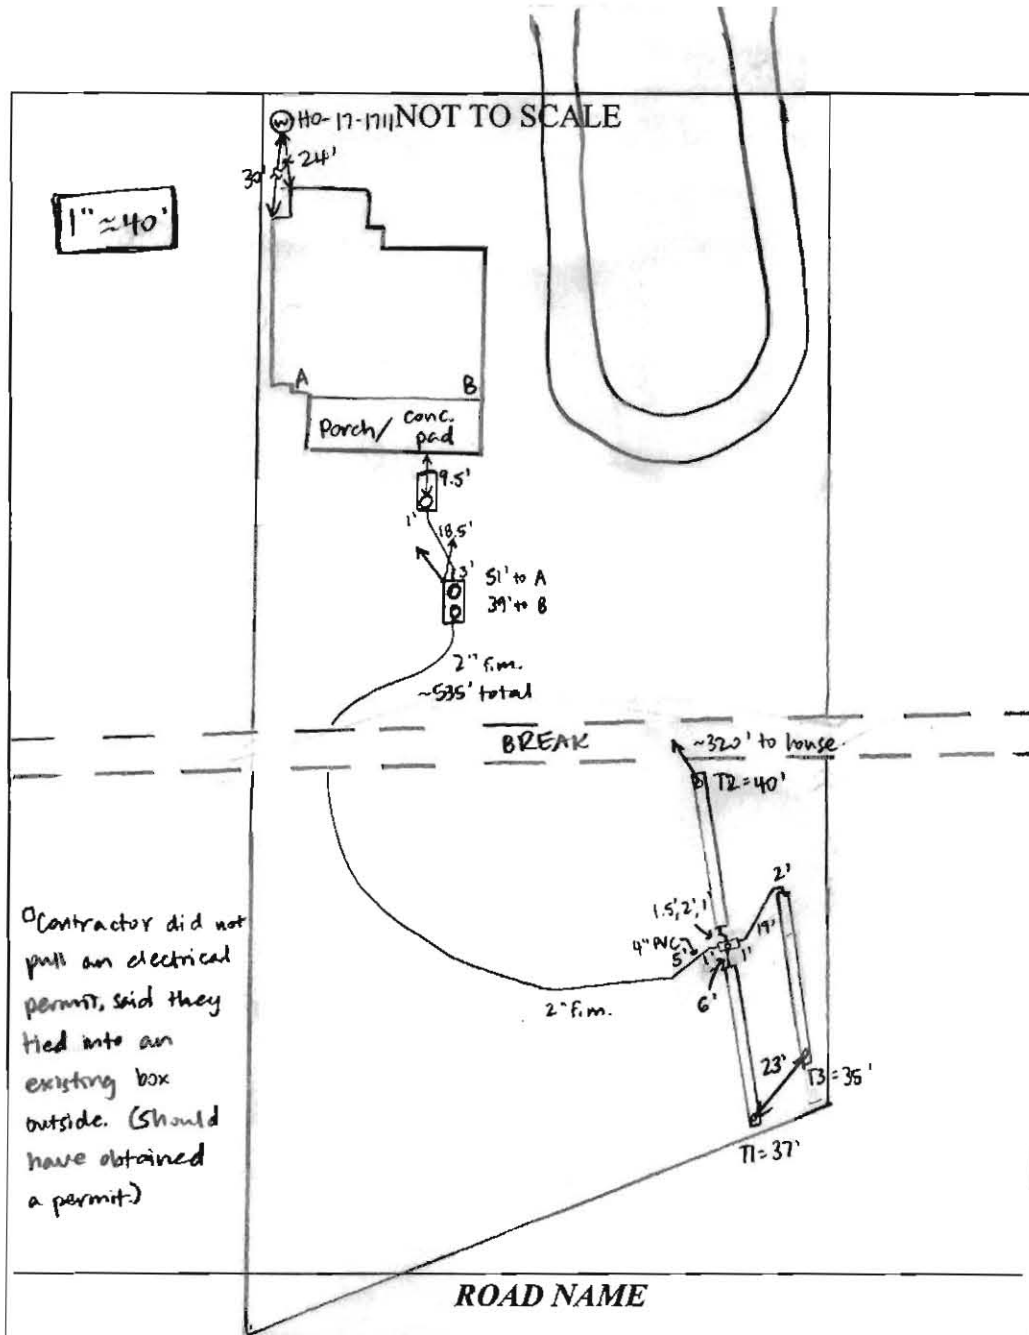 NOT TO SCALE
W
HO-17-1711
24'
30'
1" ≈ 40'
A
B
Porch/ conc.
pad
9.5'
1'
18.5'
3'
51' to A
39' to B
2" f.m.
~535' total
BREAK
~320' to house
T2 = 40'
2'
1.5', 2', 1'
19'
4" PVC
5'
1'
1'
6'
2" f.m.
23'
T3 = 35'
T1 = 37'
Contractor did not
pull an electrical
permit, said they
tied into an
existing box
outside. (Should
have obtained
a permit.)
ROAD NAME